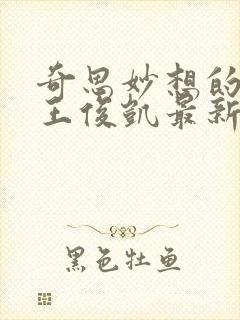 奇思妙想的
王俊凯最新
黑色牡鱼